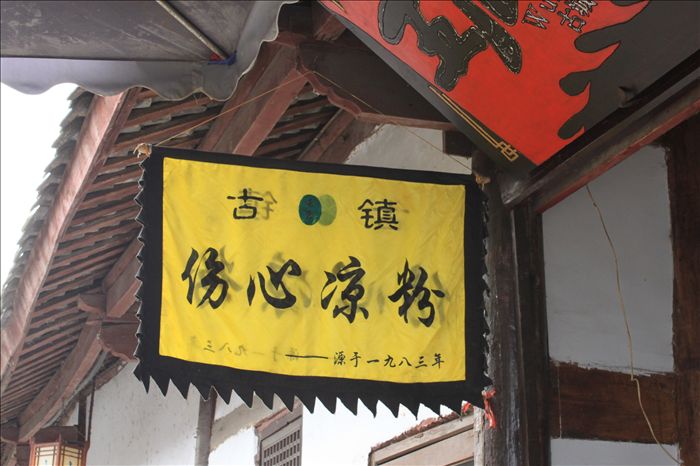 古 镇
伤心凉粉
——源于一九八三年